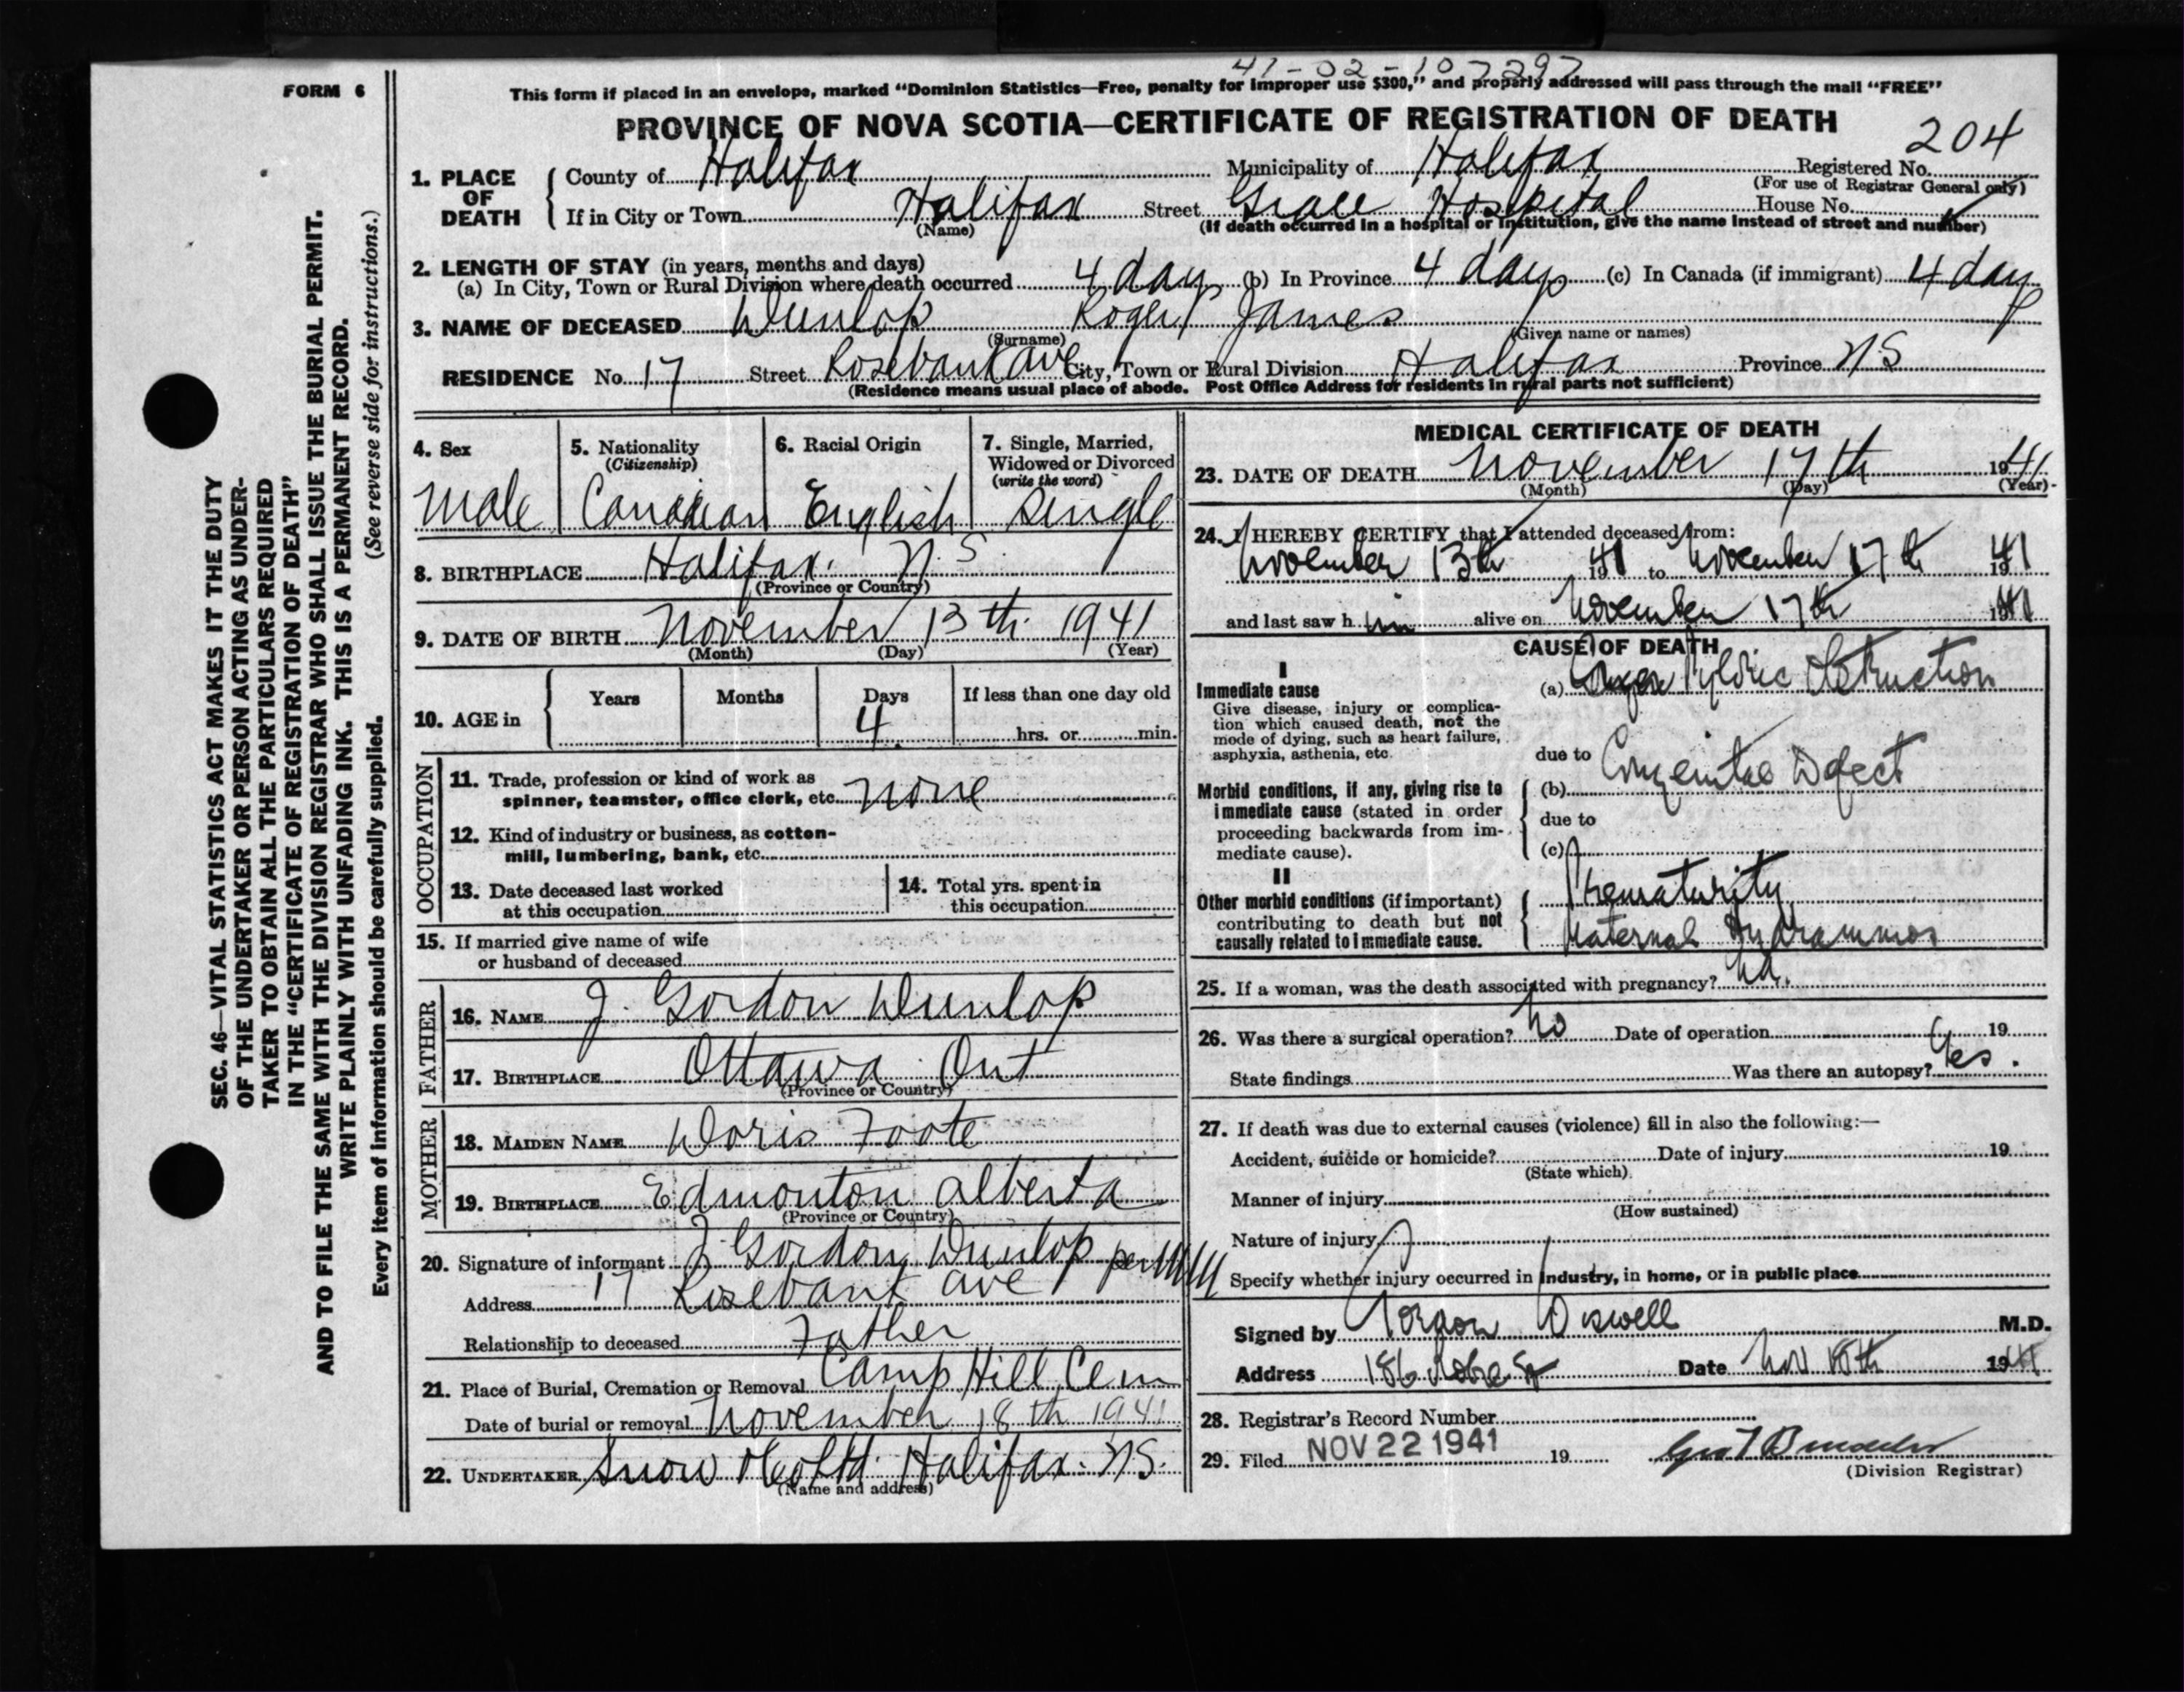 41-02-107297
FORM 6
This form if placed in an envelope, marked “Dominion Statistics—Free, penalty for improper use $300,” and properly addressed will pass through the mail “FREE”
PROVINCE OF NOVA SCOTIA—CERTIFICATE OF REGISTRATION OF DEATH
204
1. PLACE OF DEATH { County of Halifax Municipality of Halifax Registered No.
(For use of Registrar General only)
If in City or Town Halifax Street Grace Hospital House No.
(Name) (If death occurred in a hospital or institution, give the name instead of street and number)
2. LENGTH OF STAY (in years, months and days)
(a) In City, Town or Rural Division where death occurred 4 days (b) In Province 4 days (c) In Canada (if immigrant) 4 days
3. NAME OF DECEASED Dunlop Roger James
(Surname) (Given name or names)
RESIDENCE No. 17 Street Rosebank Ave City, Town or Rural Division Halifax Province N.S
(Residence means usual place of abode. Post Office Address for residents in rural parts not sufficient)
4. Sex
Male
5. Nationality
(Citizenship)
Canadian
6. Racial Origin
English
7. Single, Married,
Widowed or Divorced
(write the word)
Single
8. BIRTHPLACE Halifax. N.S.
(Province or Country)
9. DATE OF BIRTH November 13th 1941
(Month) (Day) (Year)
10. AGE in { Years Months Days If less than one day old
4 hrs. or min.
OCCUPATION
11. Trade, profession or kind of work as
spinner, teamster, office clerk, etc. none
12. Kind of industry or business, as cotton-
mill, lumbering, bank, etc.
13. Date deceased last worked
at this occupation
14. Total yrs. spent in
this occupation
15. If married give name of wife
or husband of deceased
FATHER
16. NAME J. Gordon Dunlop
17. BIRTHPLACE Ottawa Ont
(Province or Country)
MOTHER
18. MAIDEN NAME Doris Foote
19. BIRTHPLACE Edmonton Alberta
(Province or Country)
20. Signature of informant J Gordon Dunlop per
Address 17 Rosebank Ave
Relationship to deceased Father
21. Place of Burial, Cremation or Removal Camp Hill Cem
Date of burial or removal November 18th 1941
22. UNDERTAKER Snow & Co Ltd. Halifax. N.S.
(Name and address)
MEDICAL CERTIFICATE OF DEATH
23. DATE OF DEATH November 17th 1941
(Month) (Day) (Year)
24. I HEREBY CERTIFY that I attended deceased from:
November 13th 1941 to November 17th 1941
and last saw him alive on November 17th 1941
CAUSE OF DEATH
I
Immediate cause
Give disease, injury or complica-
tion which caused death, not the
mode of dying, such as heart failure,
asphyxia, asthenia, etc.
(a) Pyloric Obstruction
due to Congenital Defect
Morbid conditions, if any, giving rise to
immediate cause (stated in order
proceeding backwards from im-
mediate cause).
(b)
due to
(c)
II
Other morbid conditions (if important)
contributing to death but not
causally related to immediate cause.
Prematurity
Maternal Hydramnios
25. If a woman, was the death associated with pregnancy?
26. Was there a surgical operation? No Date of operation 19
State findings Was there an autopsy? Yes.
27. If death was due to external causes (violence) fill in also the following:—
Accident, suicide or homicide? Date of injury 19
(State which)
Manner of injury
(How sustained)
Nature of injury
Specify whether injury occurred in industry, in home, or in public place
Signed by Gordon Wiswell M.D.
Address 186 Robie St Date Nov 18th 1941
28. Registrar's Record Number
29. Filed NOV 22 1941 19
(Division Registrar)
SEC. 46—VITAL STATISTICS ACT MAKES IT THE DUTY
OF THE UNDERTAKER OR PERSON ACTING AS UNDER-
TAKER TO OBTAIN ALL THE PARTICULARS REQUIRED
IN THE “CERTIFICATE OF REGISTRATION OF DEATH”
AND TO FILE THE SAME WITH THE DIVISION REGISTRAR WHO SHALL ISSUE THE BURIAL PERMIT.
WRITE PLAINLY WITH UNFADING INK. THIS IS A PERMANENT RECORD.
Every item of information should be carefully supplied. (See reverse side for instructions.)